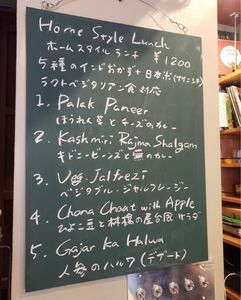 Home Style Lunch
ホームスタイルランチ ¥1200
5種のインドおかず+日本米(ササニシキ)
ラクトベジタリアン食対応
1. Palak Paneer
ほうれん草とチーズのカレー
2. Kashmiri Rajma Shalgam
キドニービーンズと蕪のカレー
3. Veg. Jalfrezi
ベジタブル・ジャルフレージー
4. Chana Chaat with Apple
ひよこ豆と林檎の屋台風サラダ
5. Gajar ka Halwa
人参のハルワ(デザート)